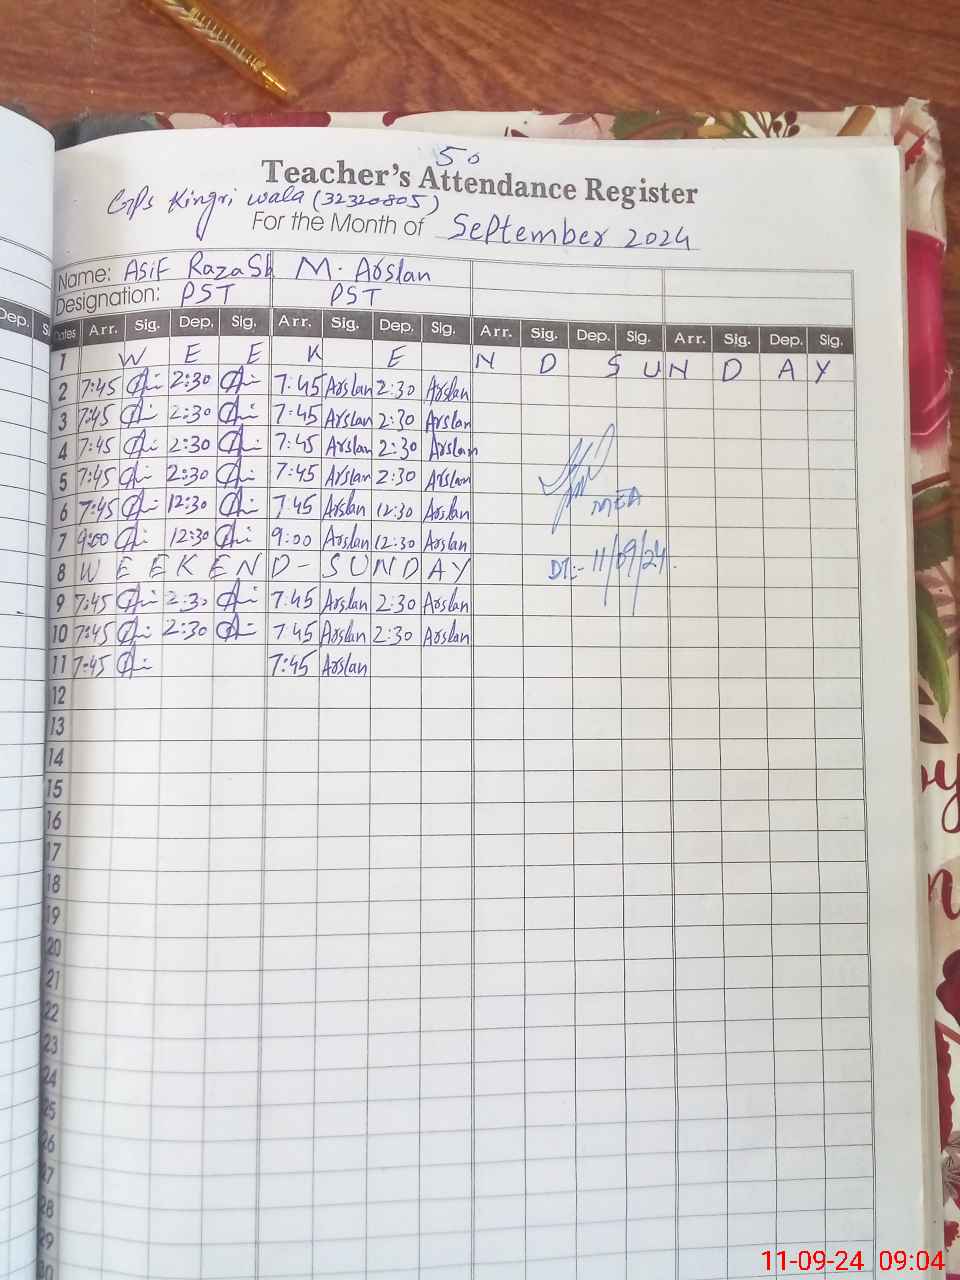 50
Teacher's Attendance Register
GPS Kingri wala (32320805)
For the Month of September 2024
Name: Asif Raza Sh M. Arslan
Designation: PST PST
Dep. S
Dates Arr. Sig. Dep. Sig. Arr. Sig. Dep. Sig. Arr. Sig. Dep. Sig. Arr. Sig. Dep. Sig.
1 W E E K E N D S U N D A Y
2 7:45 2:30 7:45 Arslan 2:30 Arslan
3 7:45 2:30 7:45 Arslan 2:30 Arslan
4 7:45 2:30 7:45 Arslan 2:30 Arslan
5 7:45 2:30 7:45 Arslan 2:30 Arslan
6 7:45 12:30 7:45 Arslan 12:30 Arslan
MEA
7 9:00 12:30 9:00 Arslan 12:30 Arslan
8 W E E K E N D - S U N D A Y
DT:- 11/09/24.
9 7:45 2:30 7:45 Arslan 2:30 Arslan
10 7:45 2:30 7:45 Arslan 2:30 Arslan
11 7:45 7:45 Arslan
12
13
14
15
16
17
18
19
20
21
22
23
24
25
26
27
28
29
30
11-09-24 09:04